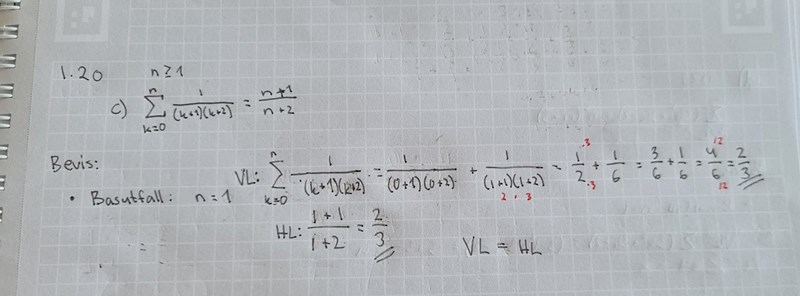 1.20 n≥1
c) n Σ k=0 1/((k+1)(k+2)) = (n+1)/(n+2)
Bevis:
• Basutfall: n=1 VL: n Σ k=0 1/((k+1)(k+2)) = 1/((0+1)(0+2)) + 1/((1+1)(1+2)) = 1/2 + 1/6 = 3/6 + 1/6 = 4/6 = 2/3
2 · 3 ·3 ·3 12 12
HL: (1+1)/(1+2) = 2/3 VL = HL